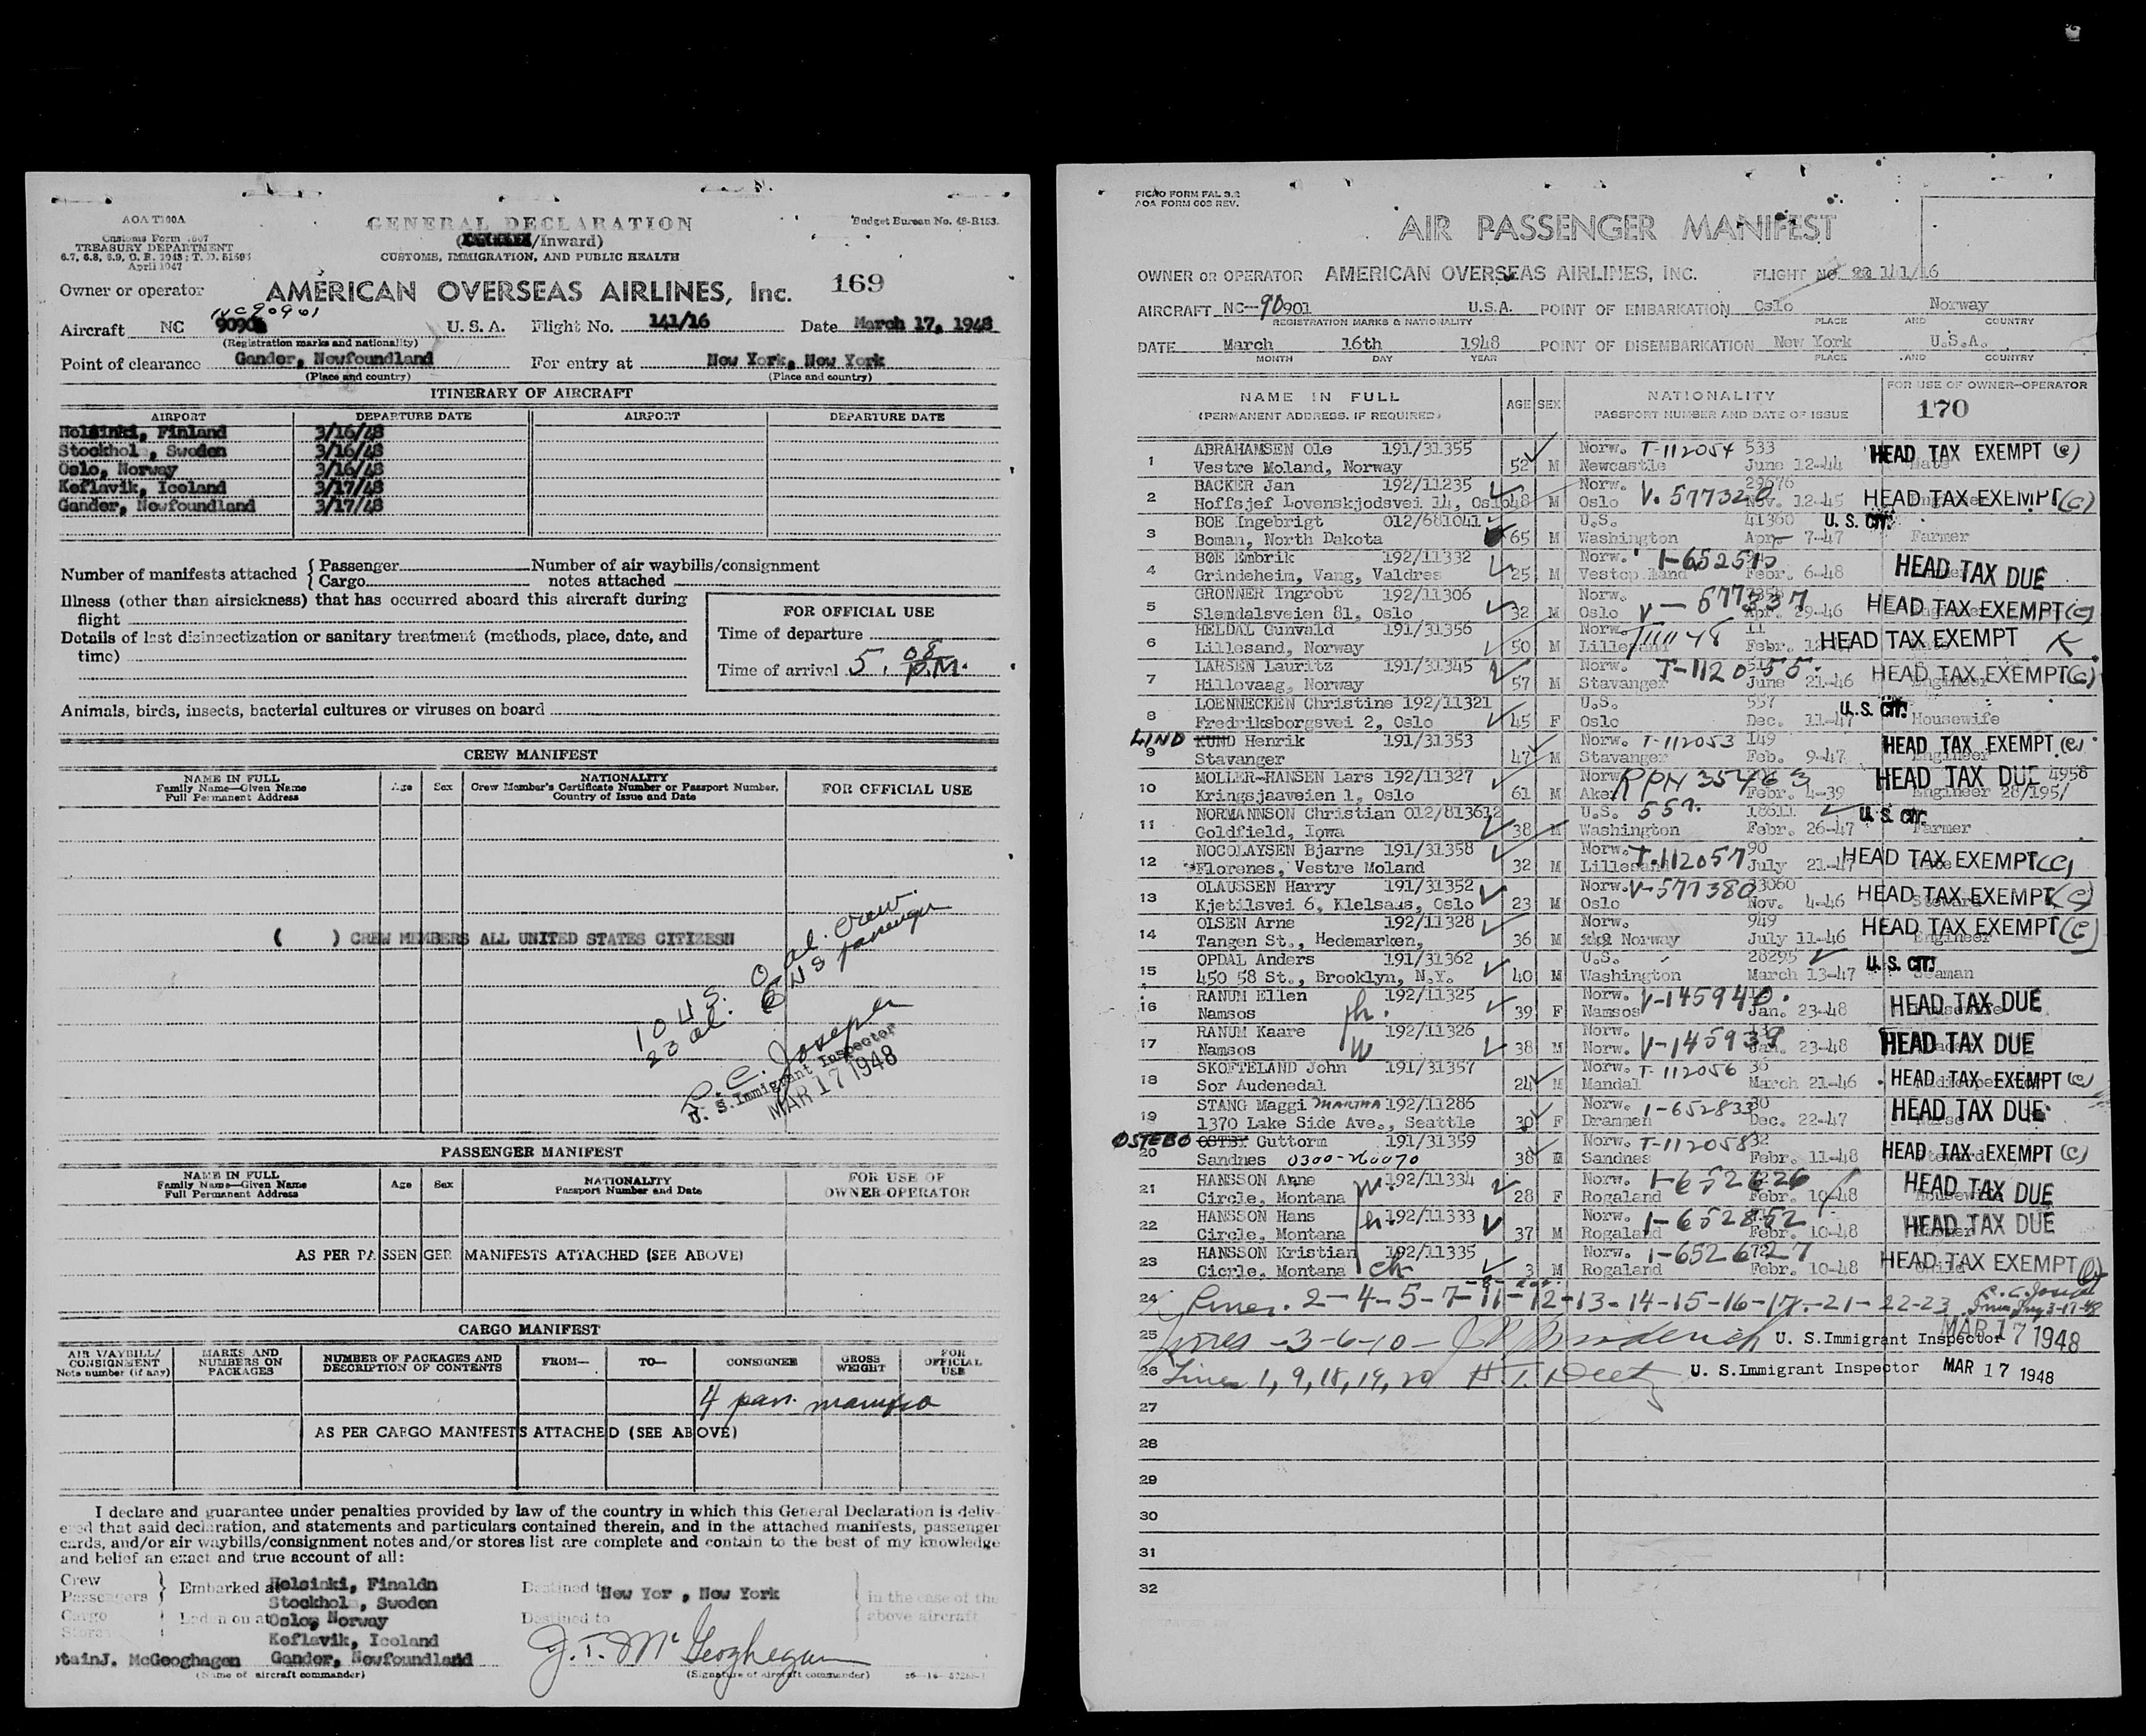 AOA T100A
Customs Form 7507
TREASURY DEPARTMENT
April 1947
GENERAL DECLARATION
(/Inward)
CUSTOMS, IMMIGRATION, AND PUBLIC HEALTH
Budget Bureau No. 48-R153.
Owner or operator AMERICAN OVERSEAS AIRLINES, Inc. 169
NC90901
Aircraft NC U. S. A. Flight No. 141/16 Date March 17, 1948
(Registration marks and nationality)
Point of clearance Gander, Newfoundland For entry at New York, New York
(Place and country) (Place and country)
ITINERARY OF AIRCRAFT
AIRPORT DEPARTURE DATE AIRPORT DEPARTURE DATE
Helsinki, Finland 3/16/48
Stockhol , Sweden 3/16/48
Oslo, Norway 3/16/48
Keflavik, Iceland 3/17/48
Gander, Newfoundland 3/17/48
Number of manifests attached { Passenger Number of air waybills/consignment
Cargo notes attached
Illness (other than airsickness) that has occurred aboard this aircraft during
flight
Details of last disinsectization or sanitary treatment (methods, place, date, and
time)
FOR OFFICIAL USE
Time of departure
Time of arrival 5.08 P.M.
Animals, birds, insects, bacterial cultures or viruses on board
CREW MANIFEST
NAME IN FULL
Family Name—Given Name
Full Permanent Address
Age Sex
NATIONALITY
Crew Member's Certificate Number or Passport Number,
Country of Issue and Date
FOR OFFICIAL USE
( ) CREW MEMBERS ALL UNITED STATES CITIZESN
10 U.S. O al. crew
23 al. 6 US passenger
R. C. Joseph
U. S. Immigrant Inspector
MAR 17 1948
PASSENGER MANIFEST
NAME IN FULL
Family Name—Given Name
Full Permanent Address
Age Sex
NATIONALITY
Passport Number and Date
FOR USE OF
OWNER-OPERATOR
AS PER PASSENGER MANIFESTS ATTACHED (SEE ABOVE)
CARGO MANIFEST
AIR WAYBILL/
CONSIGNMENT
Note number (if any)
MARKS AND
NUMBERS ON
PACKAGES
NUMBER OF PACKAGES AND
DESCRIPTION OF CONTENTS
FROM— TO— CONSIGNEE
GROSS
WEIGHT
FOR
OFFICIAL
USE
4 pass. manifes
AS PER CARGO MANIFESTS ATTACHED (SEE ABOVE)
I declare and guarantee under penalties provided by law of the country in which this General Declaration is deliv-
ered that said declaration, and statements and particulars contained therein, and in the attached manifests, passenger
cards, and/or air waybills/consignment notes and/or stores list are complete and contain to the best of my knowledge
and belief an exact and true account of all:
Crew
Passengers } Embarked at Helsinki, Finaldn Destined to New Yor , New York } in the case of the
Stockhol , Sweden
Cargo
Stores } Laden on at Oslo, Norway Destined to above aircraft
Keflavik, Iceland
ptainJ. McGeoghagen Gander, Newfoundland J. T. McGeoghegan
(Name of aircraft commander) (Signature of aircraft commander)
PICAO FORM FAL 3.2
AOA FORM 603 REV.
AIR PASSENGER MANIFEST
OWNER OR OPERATOR AMERICAN OVERSEAS AIRLINES, INC. FLIGHT NO 141/16
AIRCRAFT NC-90901 U.S.A. POINT OF EMBARKATION Oslo Norway
REGISTRATION MARKS & NATIONALITY PLACE AND COUNTRY
DATE March 16th 1948 POINT OF DISEMBARKATION New York U.S.A.
MONTH DAY YEAR PLACE AND COUNTRY
NAME IN FULL
(PERMANENT ADDRESS. IF REQUIRED)
AGE SEX
NATIONALITY
PASSPORT NUMBER AND DATE OF ISSUE
FOR USE OF OWNER-OPERATOR
170
1 ABRAHAMSEN Ole 191/31355 Norw. T-112054 533 HEAD TAX EXEMPT (c)
Vestre Moland, Norway 52 M Newcastle June 12-44
2 BACKER Jan 192/11235 Norw. 29676 HEAD TAX EXEMPT (C)
Hoffsjef Lovenskjodsvei 14, Oslo 48 M Oslo V. 577320 Nov. 12-45
3 BOE Ingebrigt 012/681041 U.S. 41360 U. S. CIT.
Boman, North Dakota 65 M Washington Apr. 7-47 Farmer
4 BØE Embrik 192/11332 Norw. 1-652515 HEAD TAX DUE
Grindeheim, Vang, Valdres 25 M Febr. 6-48
5 GRONNER Ingrobt 192/11306 Norw. V-577337 HEAD TAX EXEMPT (C)
Slemdalsveien 81, Oslo 32 M Oslo Apr. 29-46
6 HELDAL Gunvald 191/31356 Norw. 11 HEAD TAX EXEMPT
Lillesand, Norway 50 M Lillesand Febr.
7 LARSEN Lauritz 191/31345 Norw. T-112055. HEAD TAX EXEMPT (C)
Hillevaag, Norway 57 M Stavanger June 21-46 Engineer
8 LOENNECKEN Christine 192/11321 U.S. 557 U. S. CIT.
Fredriksborgsvei 2, Oslo 45 F Oslo Dec. 11-47 Housewife
9 LIND KUND Henrik 191/31353 Norw. T-112053 149 HEAD TAX EXEMPT (c)
Stavanger 47 M Stavanger Feb. 9-47 Engineer
10 MOLLER-HANSEN Lars 192/11327 Norw. RPH 35463 HEAD TAX DUE 4958
Kringsjaaveien 1, Oslo 61 M Aker Febr. 4-39 Engineer 28/195/
11 NORMANNSON Christian 012/813612 U.S. 557. 18611 U. S. CIT.
Goldfield, Iowa 38 M Washington Febr. 26-47 Farmer
12 NOCOLAYSEN Bjarne 191/31358 Norw. T-112057 90 HEAD TAX EXEMPT (C)
Florenes, Vestre Moland 32 M Lillesand July 21-47
13 OLAUSSEN Harry 191/31352 Norw. V-577380 33060 HEAD TAX EXEMPT (C)
Kjetilsvei 6, Klelsaas, Oslo 23 M Oslo Nov. 4-46
14 OLSEN Arne 192/11328 Norw. 949 HEAD TAX EXEMPT (C)
Tangen St., Hedemarken, 36 M Norway July 11-46 Engineer
15 OPDAL Anders 191/31362 U.S. 28295 U. S. CIT.
450 58 St., Brooklyn, N.Y. 40 M Washington March 13-47 Seaman
16 RANUM Ellen 192/11325 Norw. V-145940. HEAD TAX DUE
Namsos 39 F Namsos Jan. 23-48
17 RANUM Kaare 192/11326 Norw. V-145939 HEAD TAX DUE
Namsos 38 M Norw. Jan. 23-48
18 SKOFTELAND John 191/31357 Norw. T-112056 36 HEAD TAX EXEMPT (c)
Sor Audenedal 24 M Mandal March 21-46
19 STANG Maggi MARTHA 192/11286 Norw. 1-652833 HEAD TAX DUE
1370 Lake Side Ave., Seattle 30 F Drammen Dec. 22-47 Nurse
20 OSTEBO Guttorm 191/31359 Norw. T-112058 32 HEAD TAX EXEMPT (C)
Sandnes 0300-260070 38 M Sandnes Febr. 11-48
21 HANSSON Anne w. 192/11334 Norw. 1-652626 HEAD TAX DUE
Circle, Montana 28 F Rogaland Febr. 10-48 Housewife
22 HANSSON Hans h. 192/11333 Norw. 1-652852 HEAD TAX DUE
Circle, Montana 37 M Rogaland Febr. 10-48
23 HANSSON Kristian 192/11335 Norw. 1-652627 HEAD TAX EXEMPT
Cicrle, Montana ch 3 M Rogaland Febr. 10-48 Child
24 Lines. 2-4-5-7-11-12-13-14-15-16-17-21-22-23 R. C. Joseph
25 Lines -3-6-10- U. S. Immigrant Inspector MAR 17 1948
26 Lines 1, 9, 18, 19, 20 U. S. Immigrant Inspector MAR 17 1948
27
28
29
30
31
32